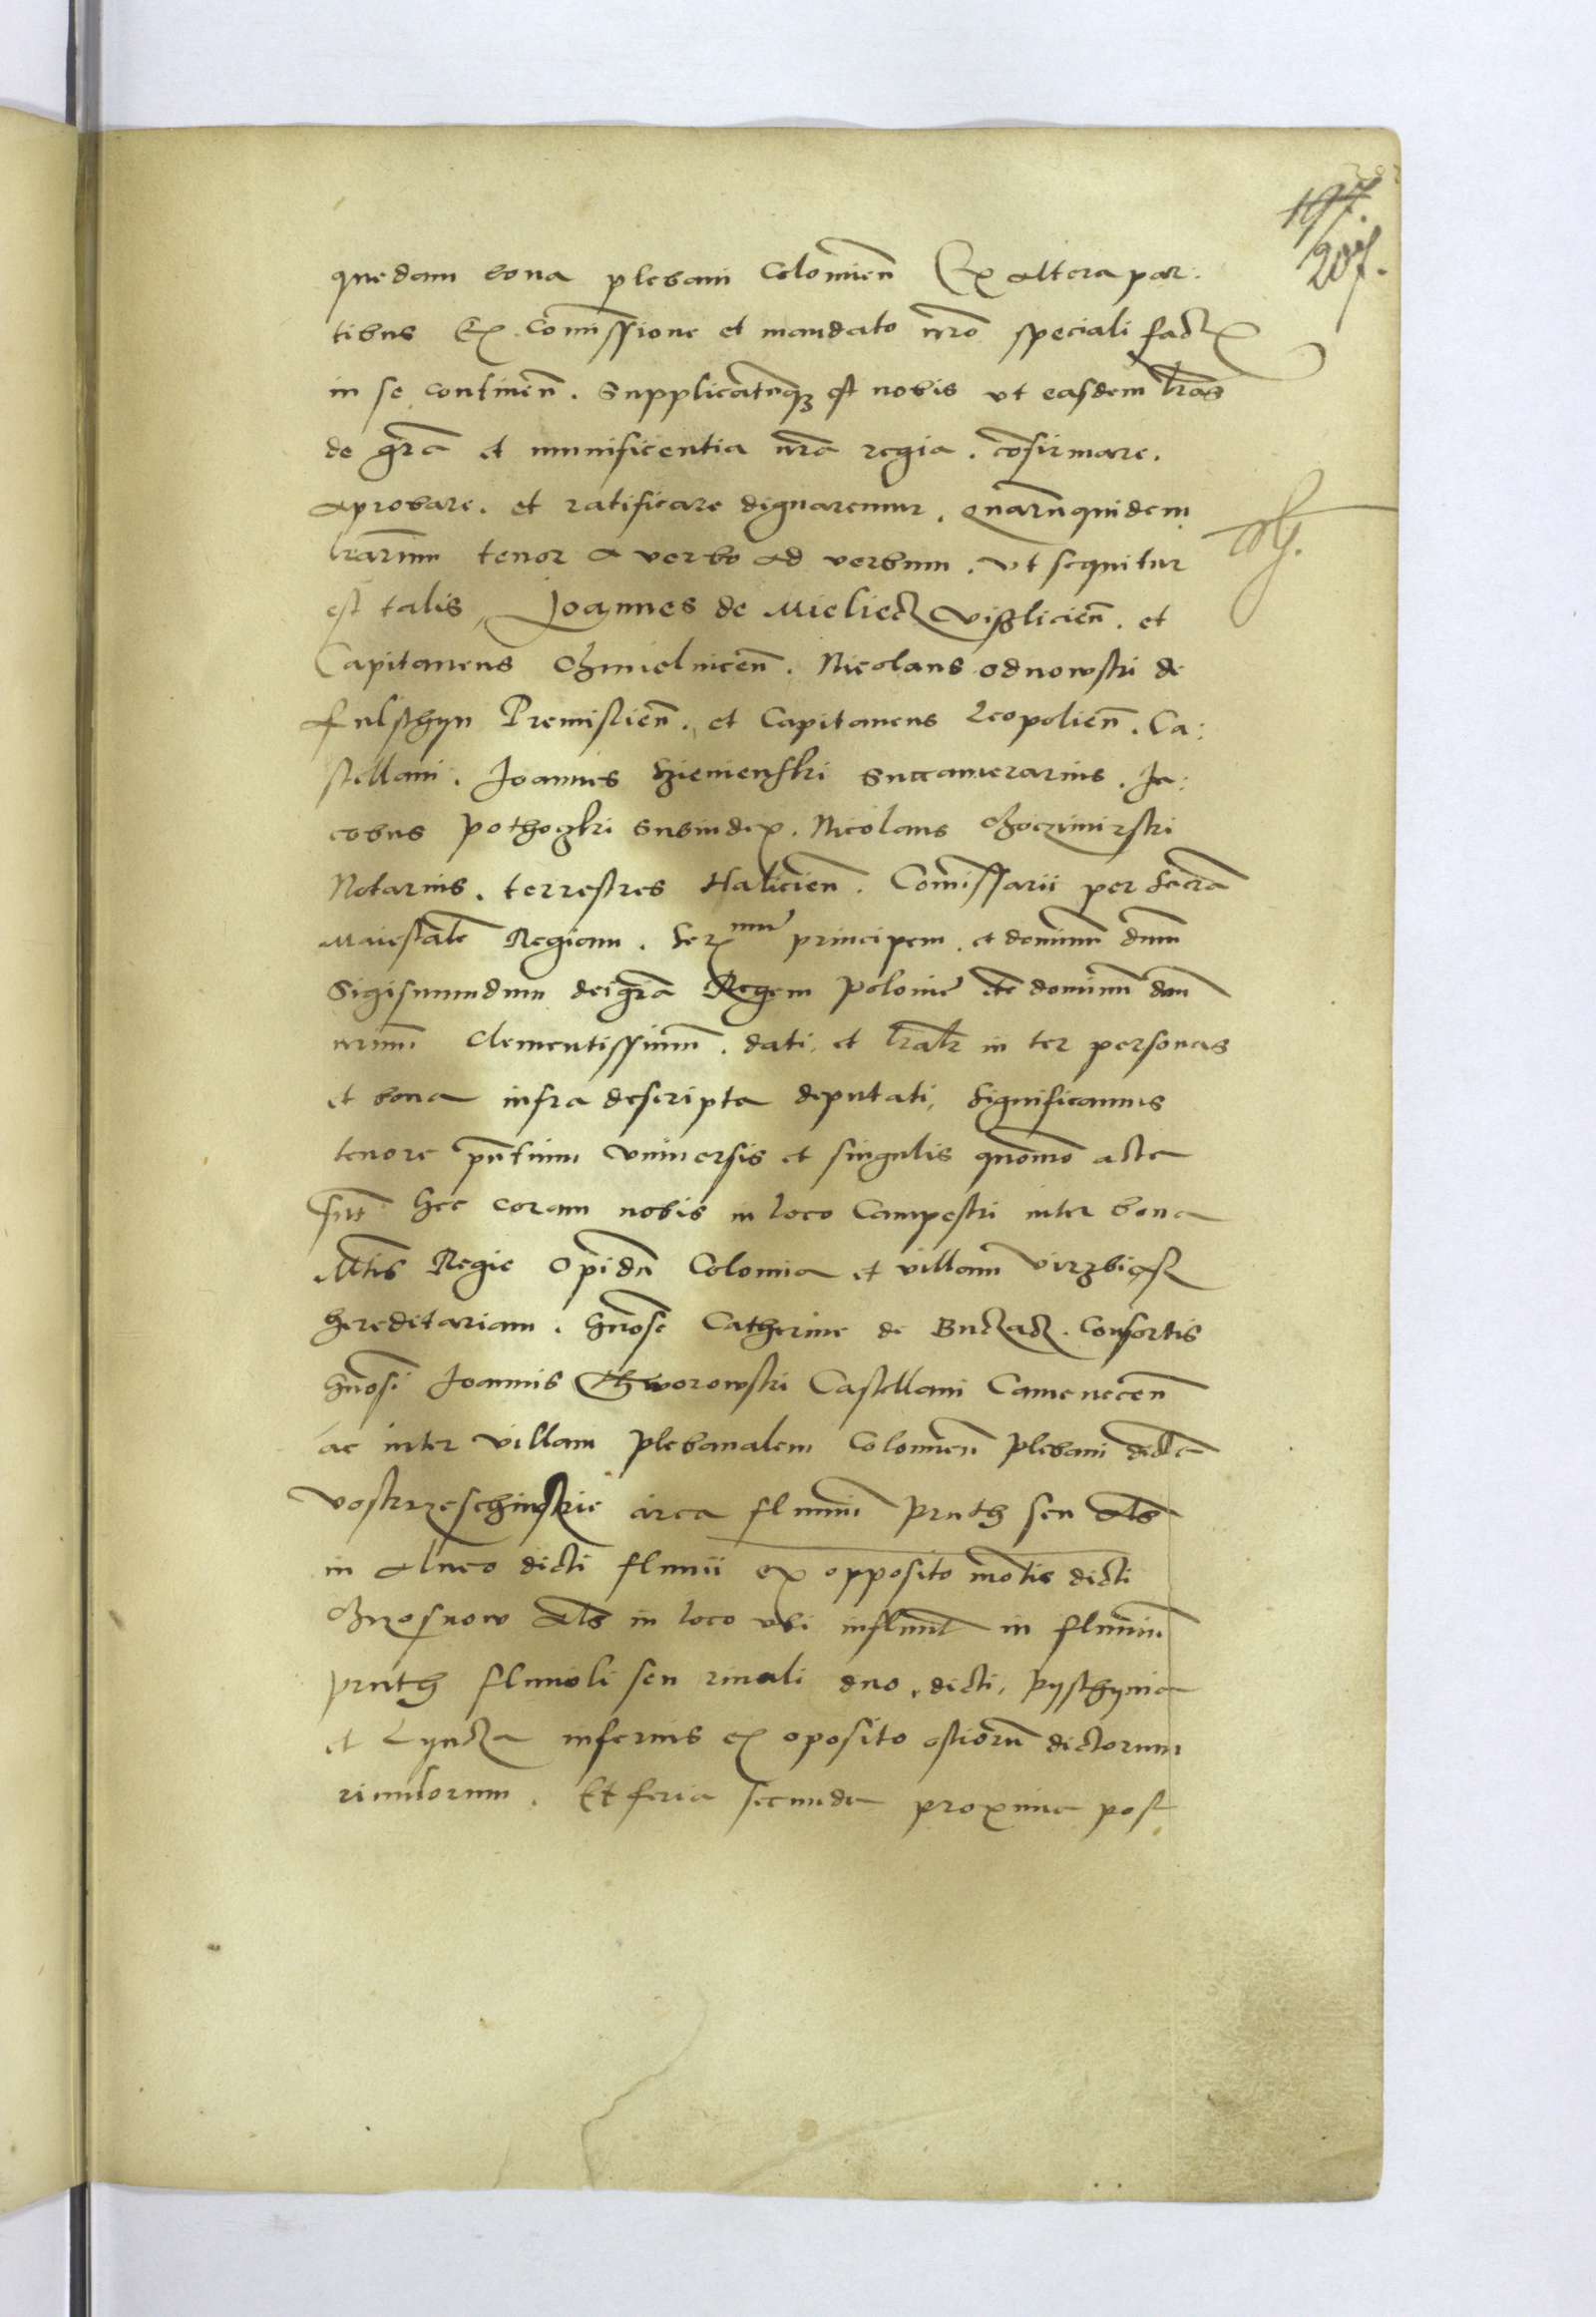 197.
207.
quedam bona plebani Colomien̄ Ex altera par:
tibus Ex Comissione et mandato nr̄o speciali fact
in se continen̄. Supplicatūq3 est nobis vt easdem lr̄as
de gr̄a et munificentia nr̄a regia. cōfirmare.
aprobare. et ratificare dignaremur. quarūquidem
lr̄arum tenor a verbo ad verbum. vt sequitur
est talis, Joannes de Mielecz Visliciēn. et
Capitaneus Chmielnicēn. Nicolaus odnowski de
Fulschyn Premisliēn. et Capitaneus Leopoliēn. Ca:
stellani. Joannes Szienienski Succamerarius. Ja:
cobus pothoczki Subiudex. Nicolaus Choczimirski
Notarius. terrestres Haliciēn. Comissarii per Sacrā
Maiestatē Regiam. Ser^mū principem. et dominū dnū
Sigismundum dei gr̄a Regem polonie etc dominū dnū
nrūm Clementissimū. dati. et lr̄alr̄ in ter personas
et bona infra descripta deputati, Significamus
tenore pn̄tium vniuersis et singulis quōmō acta
sūt hec coram nobis in loco Campestri inter bona
Mtis Regie Opidū Colomia et villam virzbiasz
hereditariam. Gnōse Catherine de Buczacz. Consortis
Gnōsi Joannis Thworowski Castellani Camenecēn
ac inter villam plebanalem Colomiēn plebani dictā
voskrzeschinskie circa fluuiū Pruth seu als
in alueo dicti fluuii ex opposito mōtis dicti
als in loco vbi influūt in fluuiū
pruth fluuioli seu riuali duo. dicti, Pysthynia
et Lyuczka inferius ex oposito ostiorū dictorum
riuulorum. Et feria secunda proxima post